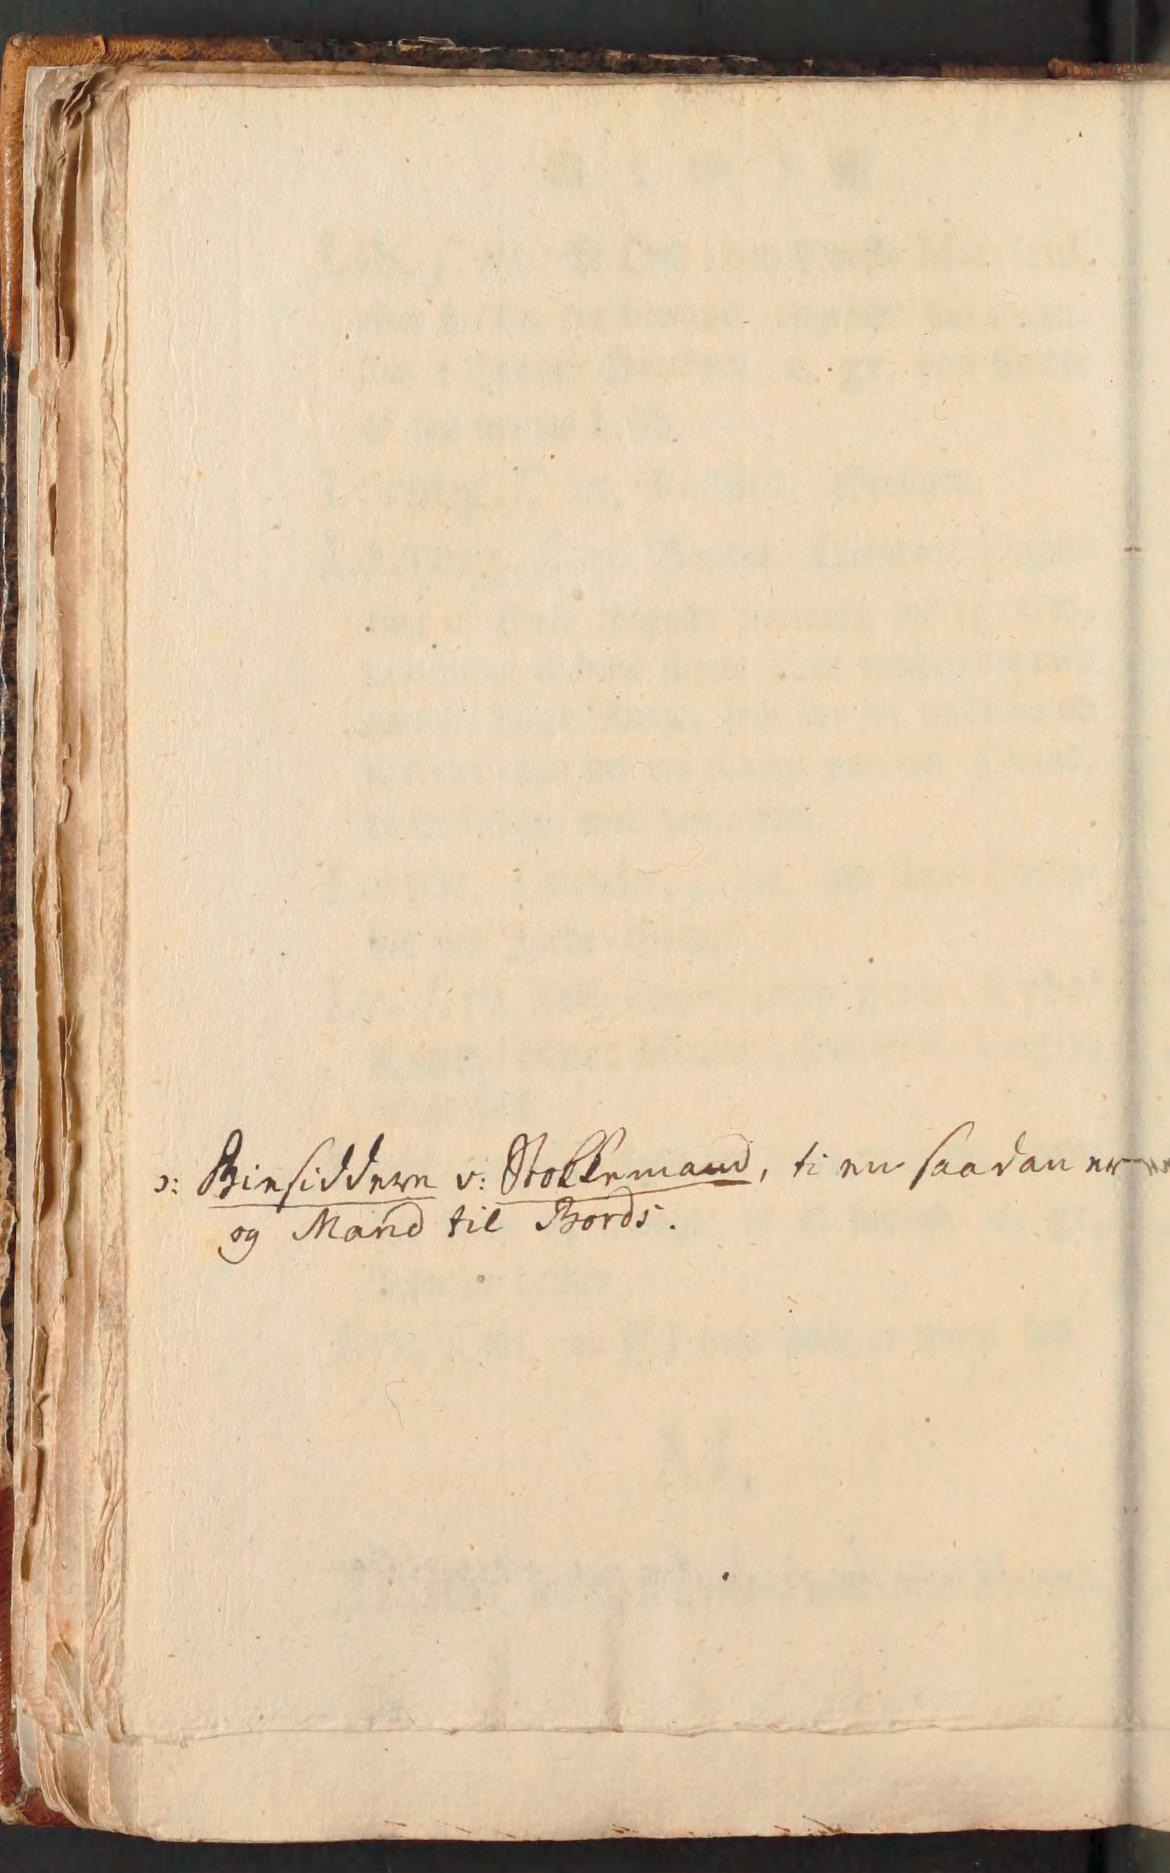 ɔ: Biesiddere v: Stokkemand, ti en saadan er
og Mand til Bords.